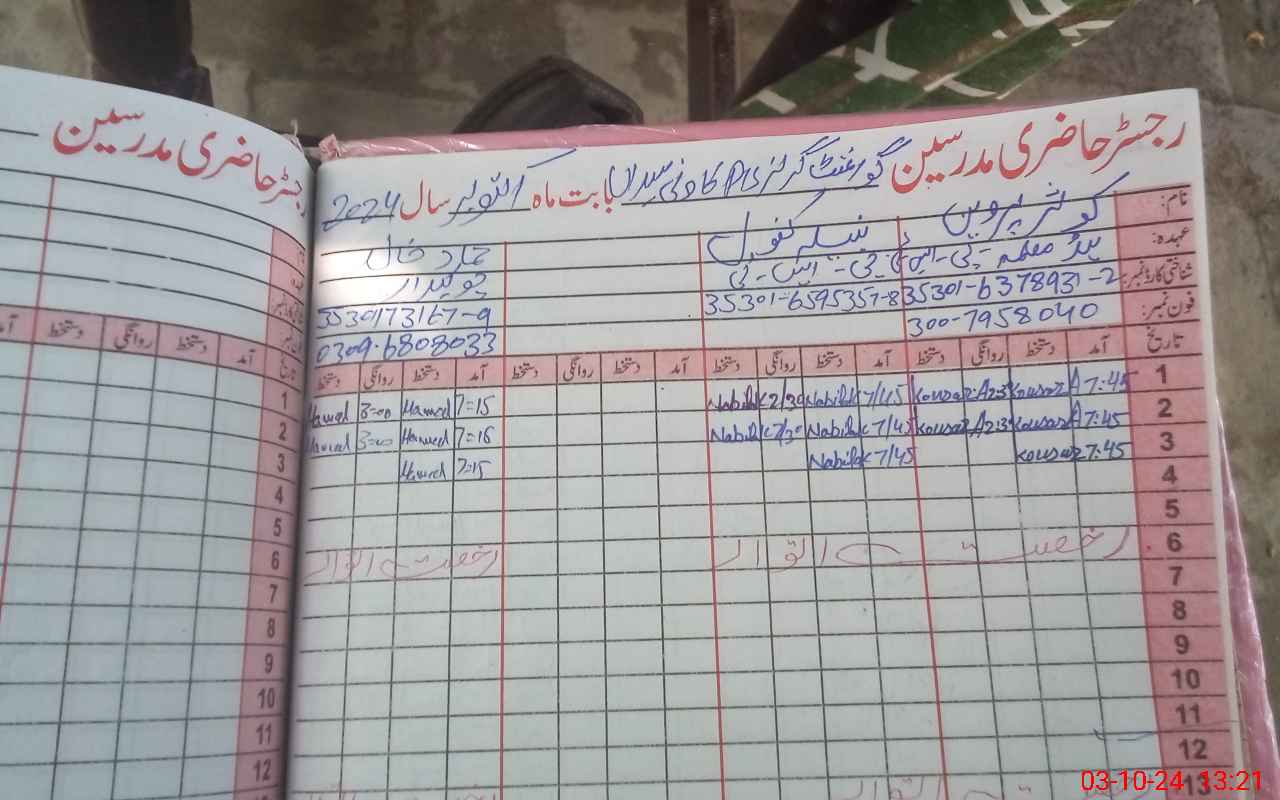 رجسٹر حاضری مدرسین
رجسٹر حاضری مدرسین گورنمنٹ گرلز بابت ماہ اکتوبر سال 2024
نام: کوثر پروین نبیلہ کنول حماد خان
عہدہ: ہیڈ معلمہ پی۔ایس۔ٹی پی۔ایس۔ٹی چوکیدار
شناختی کارڈ نمبر: 35301-6378931-2 35301-6595357-8
فون نمبر: 300-7958040 0309-6808033
تاریخ آمد دستخط روانگی دستخط آمد دستخط روانگی دستخط آمد دستخط روانگی دستخط آمد دستخط روانگی دستخط
تاریخ آمد دستخط روانگی دستخط
1 7:45 Kousar A Kousar A 7/45 Nabila K 2/30 Nabila K 7=15 Hamed 3=00 Hamed 1
2 7:45 Kousar A Kousar A 7/45 Nabila K Nabila K 7=16 Hamed 3=00 Hamed 2
3 7:45 Kousar 7/45 Nabila K 7=15 Hamed 3
4 4
5 5
6 رخصت اتوار رخصت اتوار 6
7 7
8 8
9 9
10 10
11 11
12 12
13
03-10-24 13:21